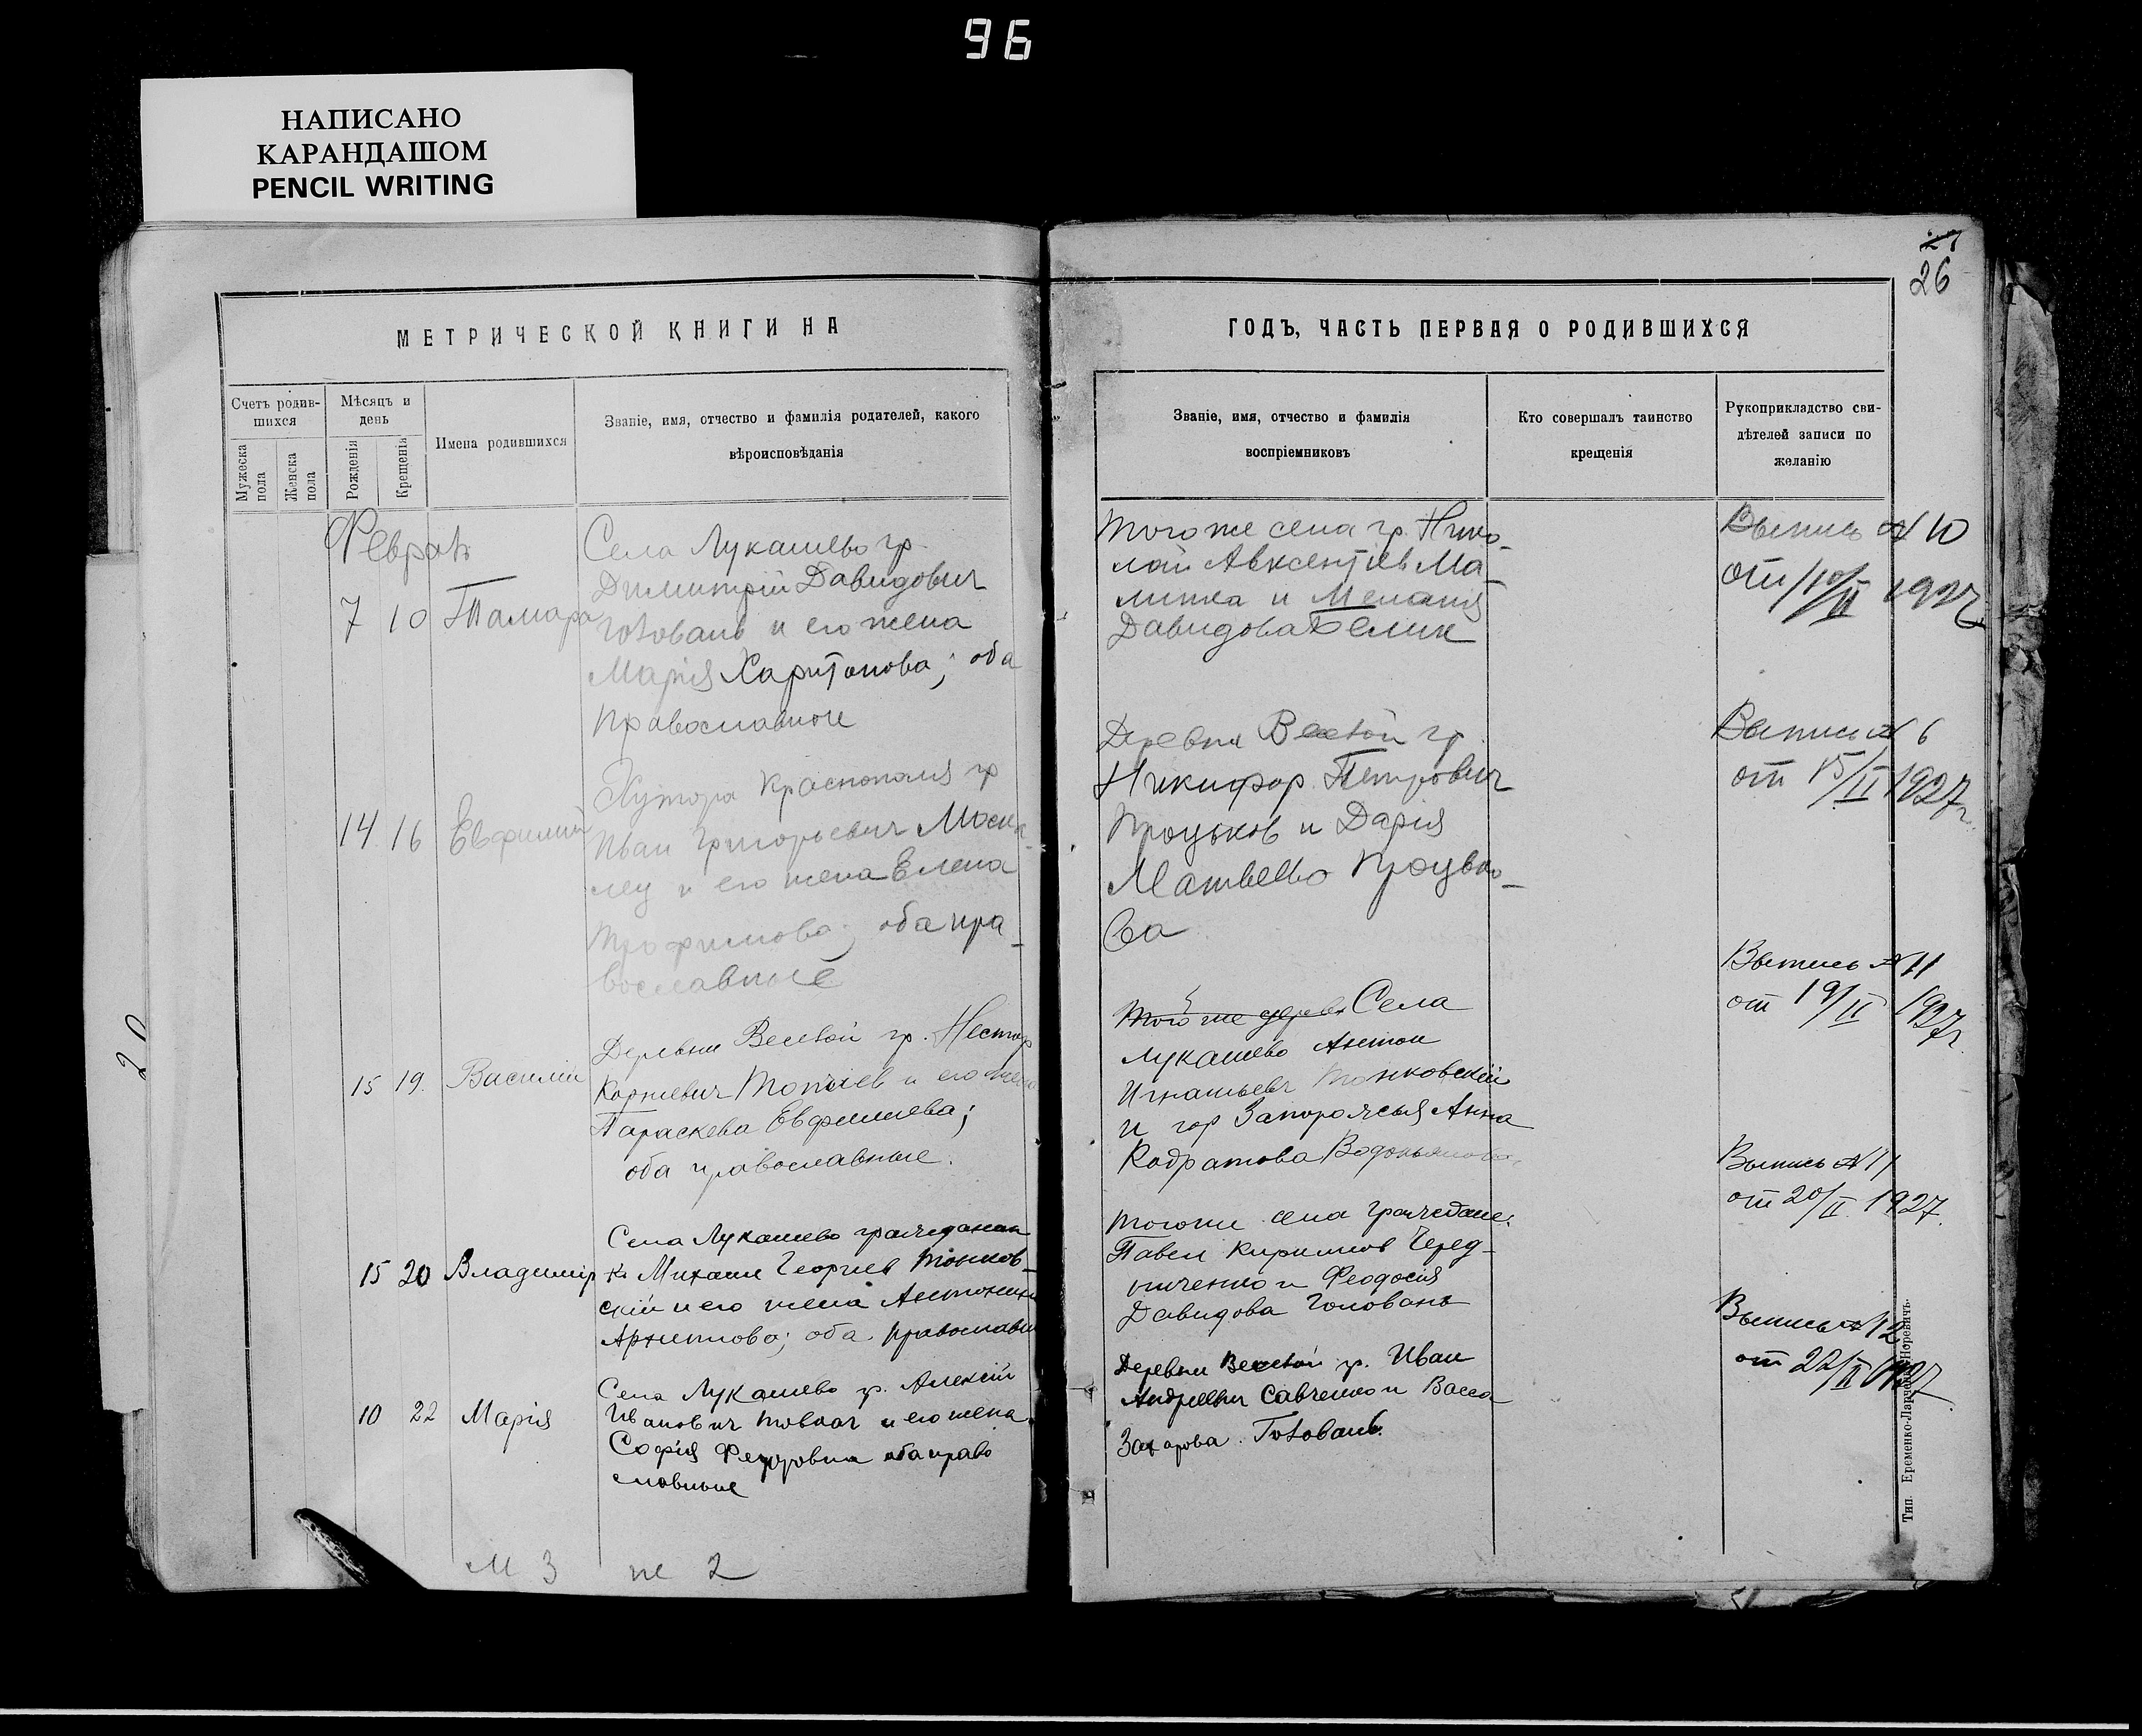 96
НАПИСАНО
КАРАНДАШОМ
PENCIL WRITING
27
26
МЕТРИЧЕСКОЙ КНИГИ НА
ГОДЪ, ЧАСТЬ ПЕРВАЯ О РОДИВШИХСЯ
Счетъ родив-
шихся
Мужеска
пола
Женска
пола
Мѣсяцъ и
день
Рожденія
Крещенія
Имена родившихся
Званіе, имя, отчество и фамилія родителей, какого
вѣроисповѣданія
Званіе, имя, отчество и фамилія
воспріемниковъ
Кто совершалъ таинство
крещенія
Рукоприкладство сви-
дѣтелей записи по
желанію
7 10 Тамара
Села Лукашево гр.
Димитрій Давидович
Головань и его жена
Марія Харитонова; оба
православные
того же села гр. Нико-
лай Авксентіев Ма-
литка и Меланія
Давидова Белик
Выпись № 10
от 10/II 1927
14 16 Евфимий
Хутора Краснополя гр
Иван Григорьевич Моска-
лец и его жена Елена
Трофимова; оба пра-
вославные
Деревни Веселой гр.
Никифор Петрович
Процьков и Дарія
Матвеева Процько-
ва
Выпись № 6
от 15/II 1927г.
15 19. Василій
Деревни Веселой гр. Нестор
Корниевич и его жена
Параскева Евфимиева;
оба православные.
Того же Села
Лукашево Антон
Игнатьевич Тонковскій
и гор Запорожья Анна
Кодратова
Выпись № 11
от 19/II 1927г.
15 20 Владимір
Села Лукашево гражданин
Михаил Георгиев Тонков-
скій и его жена Антонина
Архипова; оба православн
того же села граждане:
Павел Кирилов Черед-
ниченко и Феодосія
Давидова Головань
Выпись № 11
от 20/II 1927.
10 22 Марія
Села Лукашево гр. Алексій
Иванович Товкач и его жена
Софія Федоровна оба право
славные
Деревни Веселой гр. Иван
Андреевич Савченко и Васса
Захарова Головань.
Выпись № 12
от 22/II 1927
М 3 ж 2
20